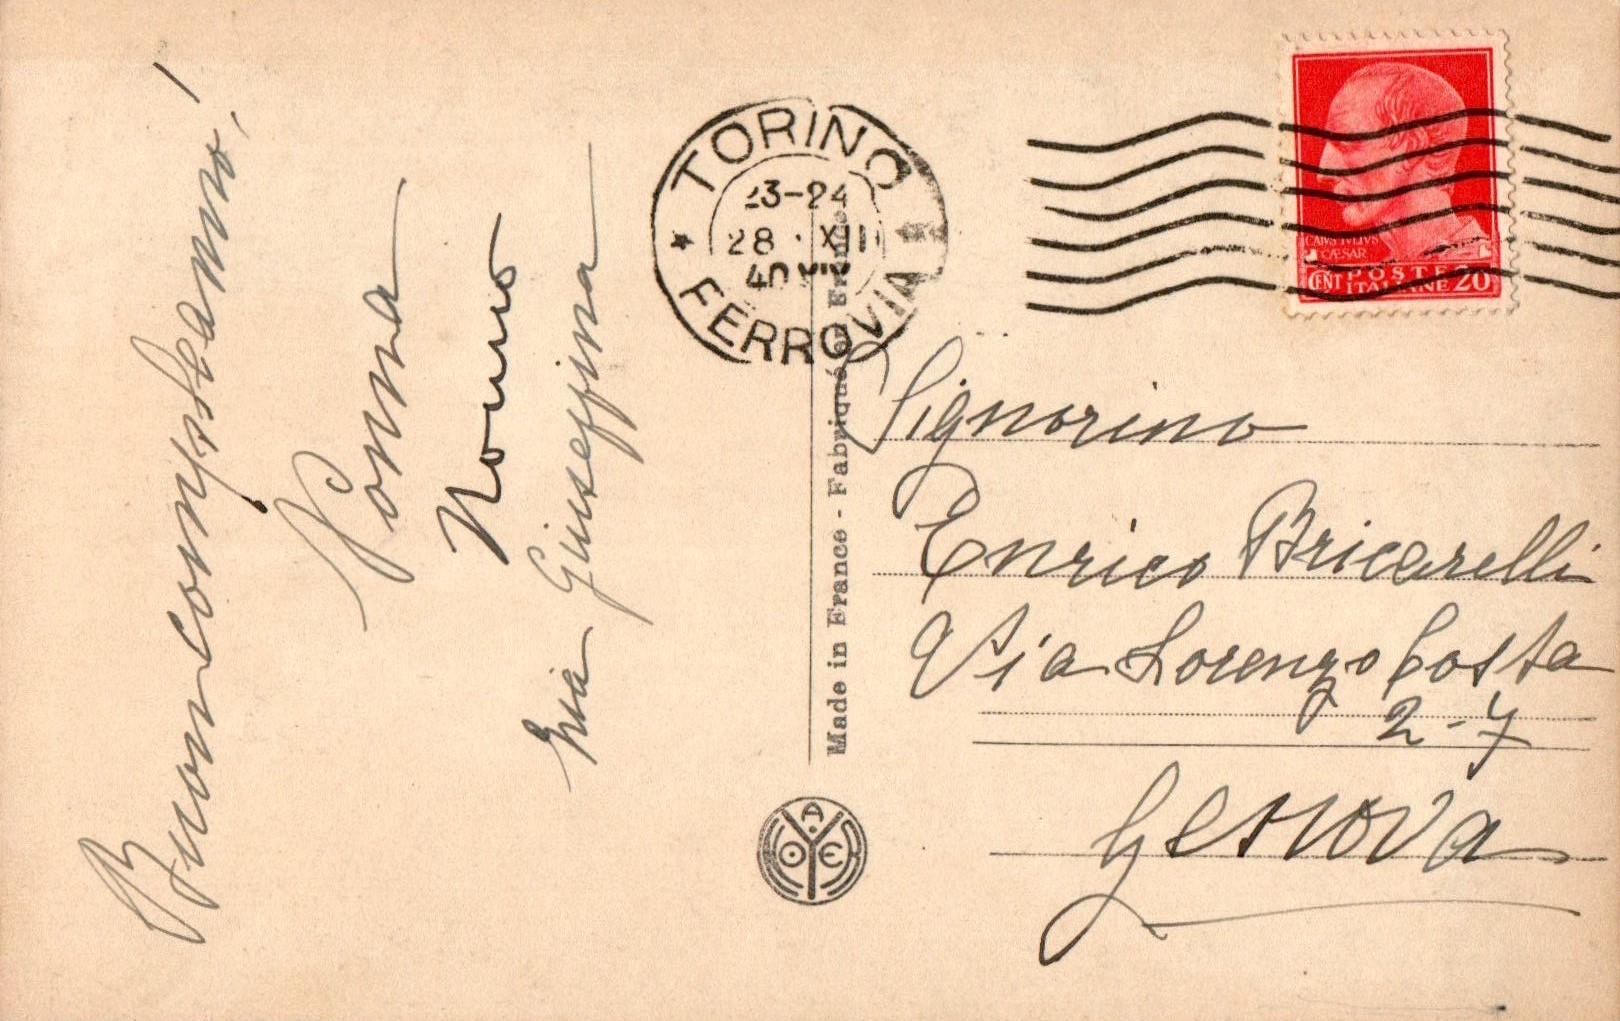 Buon compleanno!
Nonna
Nonno
Zia Giuseppina
TORINO
23-24
28 · XII
40 XIX
FERROVIA
Made in France - Fabriqué en France
CAIVS IVLIVS
CÆSAR
CENT POSTE 20
ITALIANE
Signorino
Enrico Bricarelli
Via Lorenzo Costa
2-7
Genova